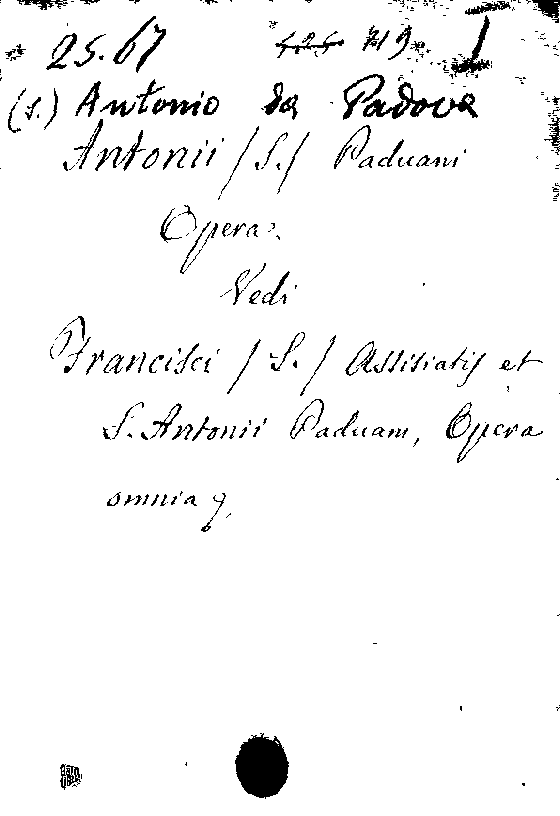 25.67 719 1
(S.) Antonio da Padova
Antonii /S./ Paduani
Opera.
Vedi
Francisci /S./ Assisiatis et
S. Antonii Paduani, Opera
omnia